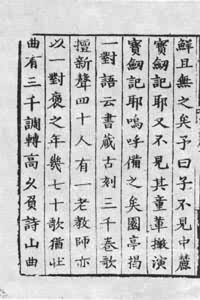 鮮且無之矣予曰子不見中麓
寶劔記耶又不見其童輩搬演
寶劔記耶嗚呼備之矣園亭揭
一對語云書藏古刻三千卷歌
擅新聲四十人有一老教師亦
以一對褒之年幾七十歌猶壯
曲有三千調轉高久負詩山曲